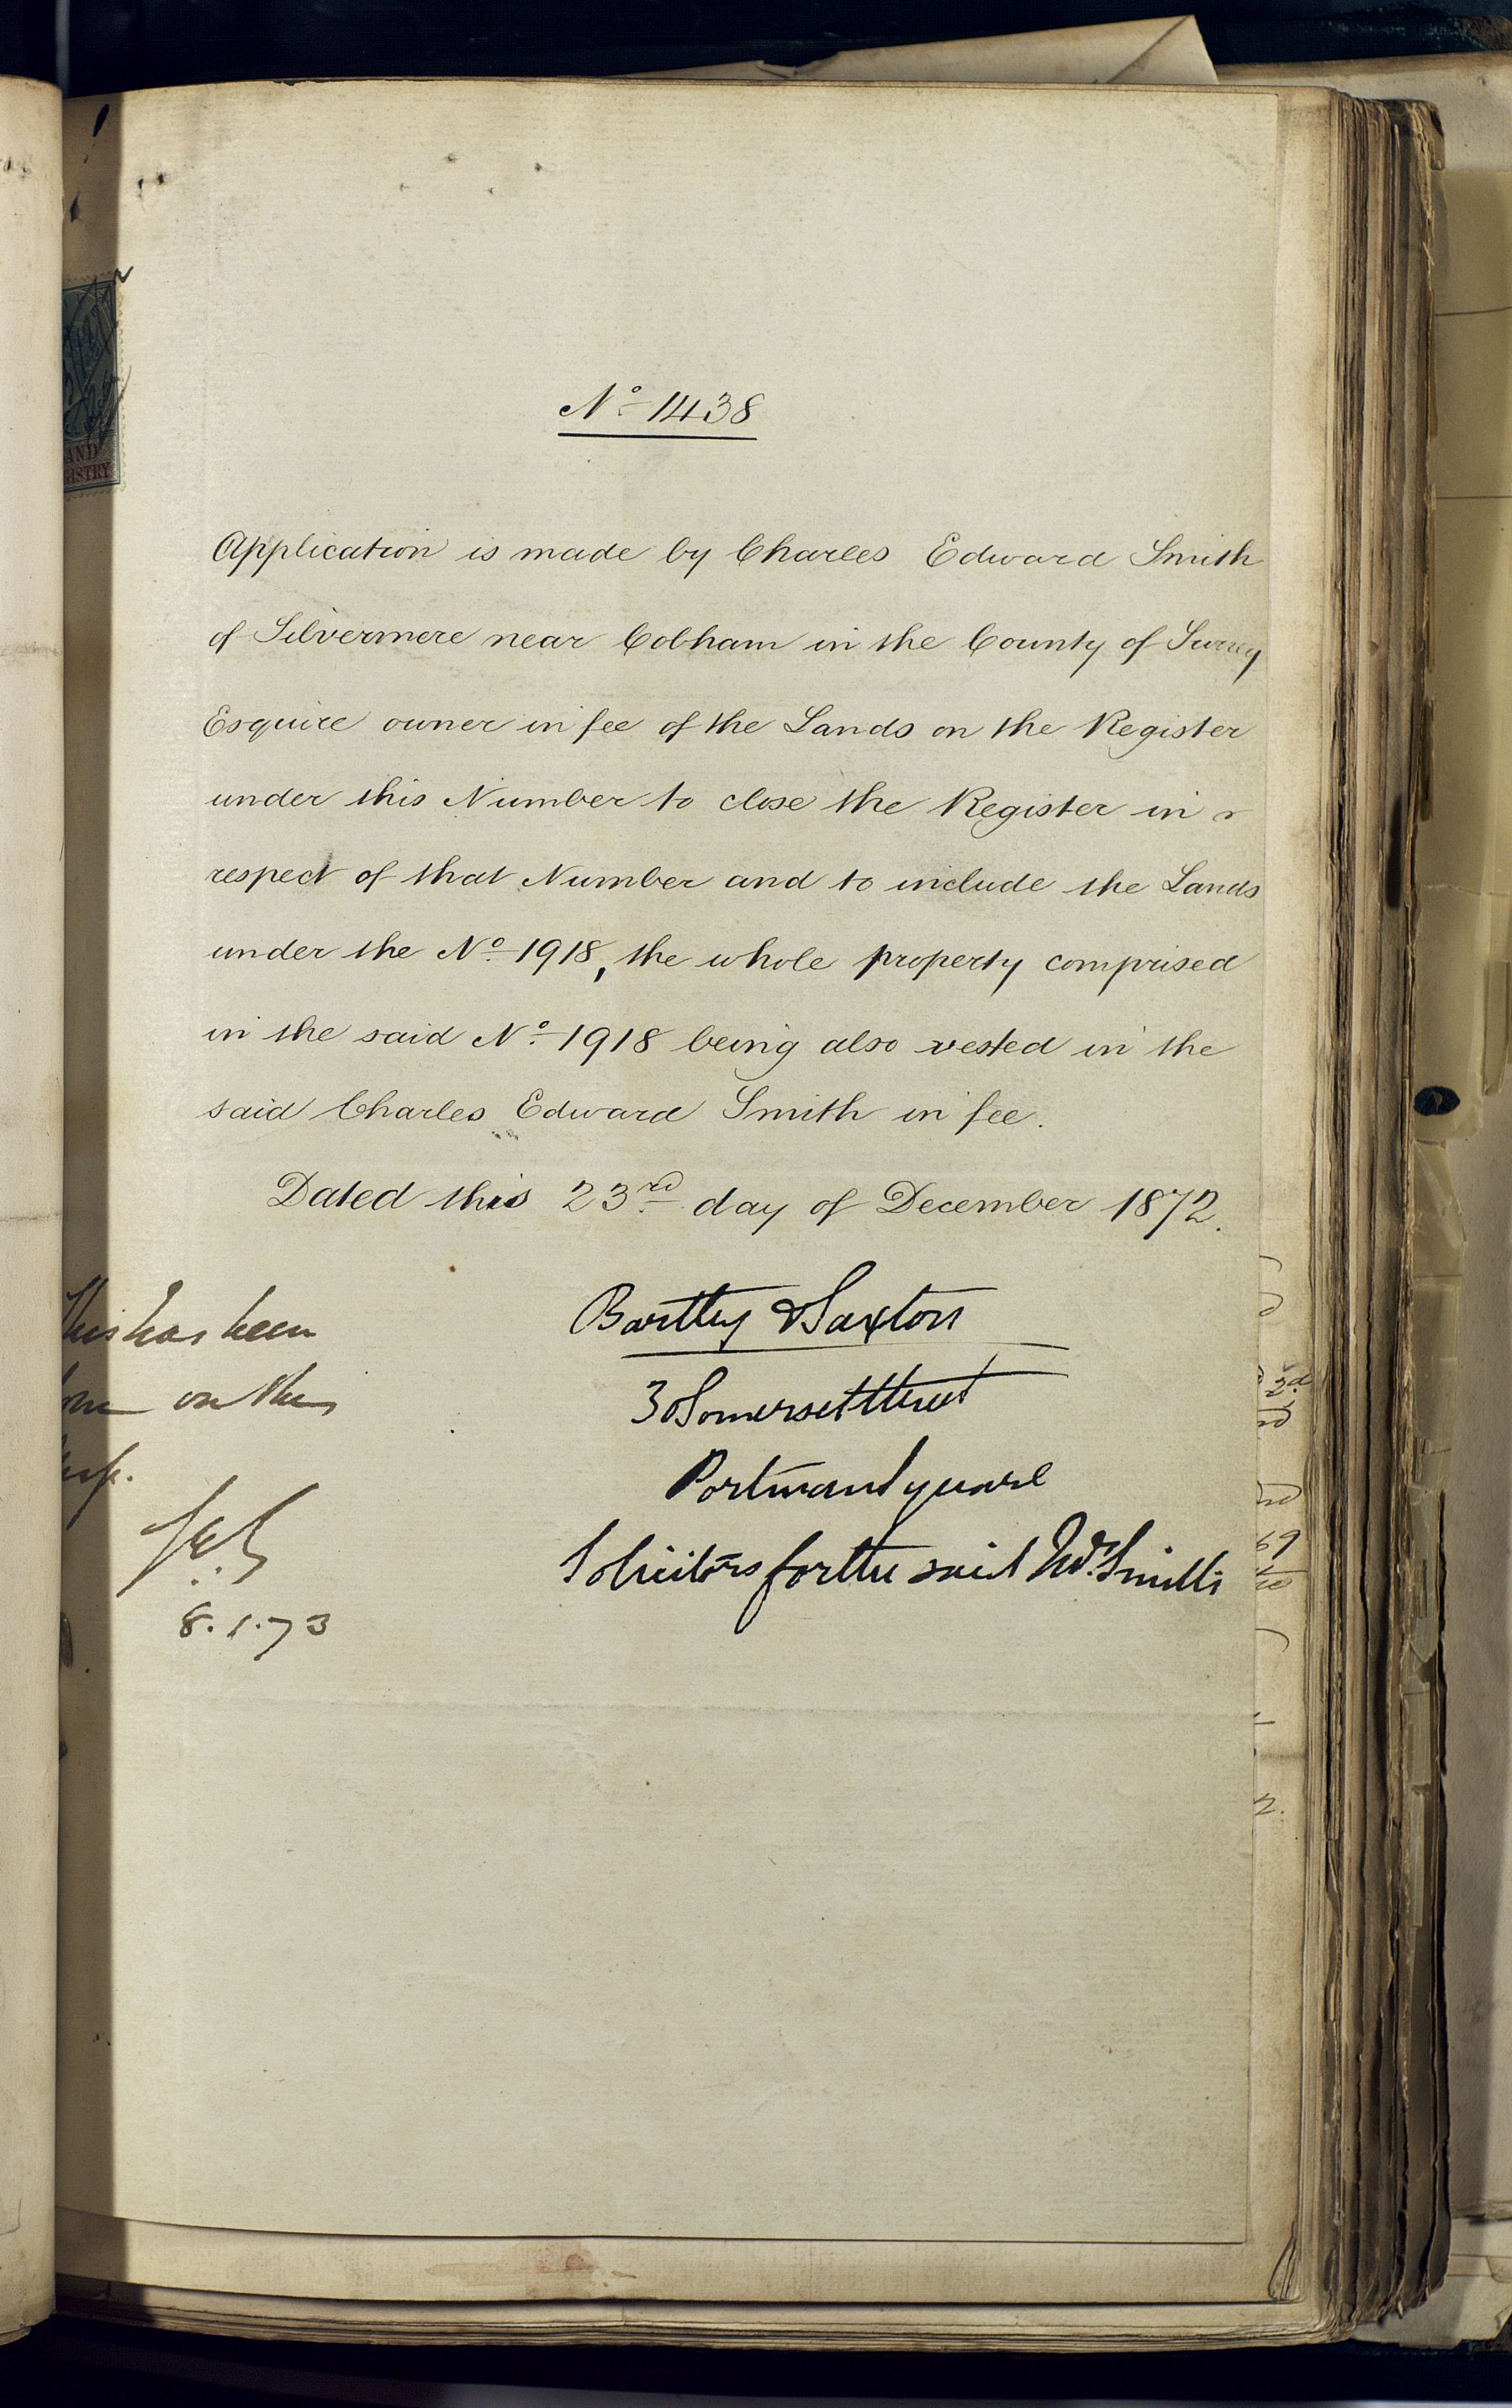 Nº 1438
AND
GISTRY
Application is made by Charles Edward Smith
of Silvermere near Cobham in the County of Surrey
Esquire owner in fee of the Lands on the Register
under this Number to close the Register in
respect of that Number and to include the Lands
under the Nº 1918, the whole property comprised
in the said Nº 1918 being also vested in the
said Charles Edward Smith in fee.
Dated this 23rd day of December 1872.
Bartley & Saxton
30 Somerset Street
Portman Square
Solicitors for the said Mr. Smith
This has been
on the
8.1.73
2d
69